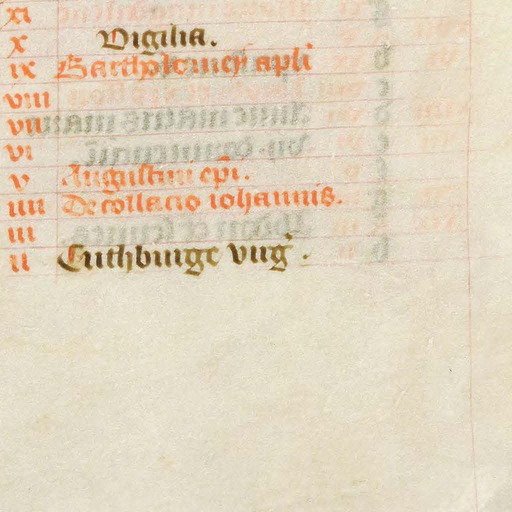 xi
x Vigilia.
ix Bartholomey apli
viii
vii
vi
v Augustini epi.
iiii Decollacio iohannis.
iii
ii Cuthburge virg.